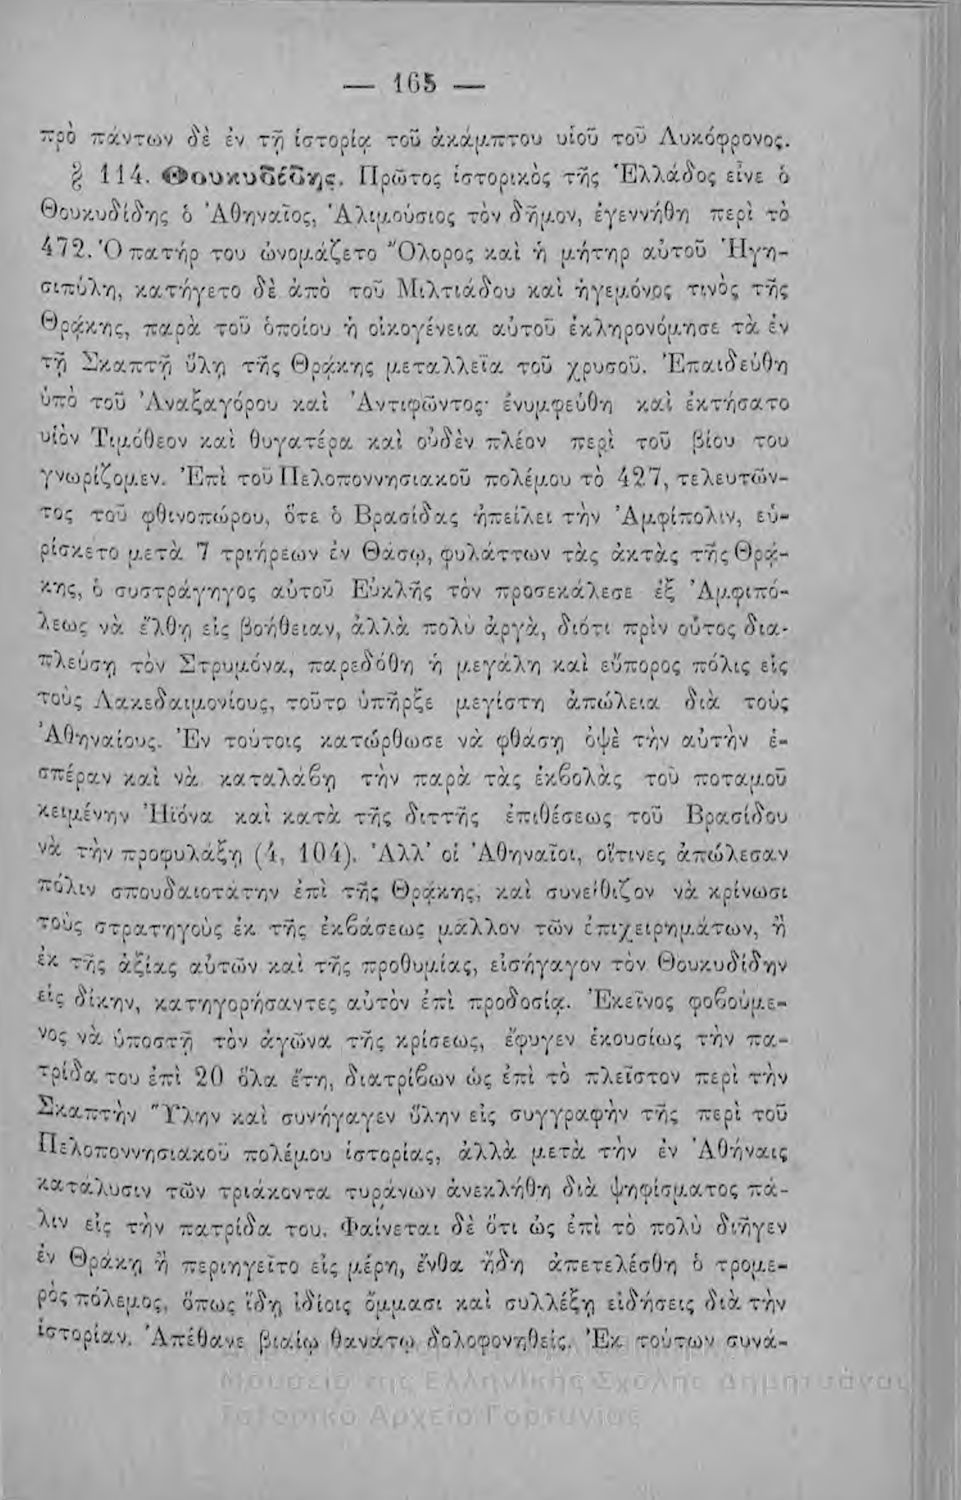 — 165 —
πρὸ πάντων δὲ ἐν τῇ ἱστορίᾳ τοῦ ἀκάμπτου υἱοῦ τοῦ Λυκόφρονος.
§ 114. Θουκυδίδης. Πρῶτος ἱστορικὸς τῆς Ἑλλάδος εἶνε ὁ
Θουκυδίδης ὁ Ἀθηναῖος, Ἁλιμούσιος τὸν δῆμον, ἐγεννήθη περὶ τὸ
472. Ὁ πατήρ του ὠνομάζετο Ὄλορος καὶ ἡ μήτηρ αὐτοῦ Ἡγη-
σιπύλη, κατήγετο δὲ ἀπὸ τοῦ Μιλτιάδου καὶ ἡγεμόνος τινὸς τῆς
Θρᾴκης, παρὰ τοῦ ὁποίου ἡ οἰκογένεια αὐτοῦ ἐκληρονόμησε τὰ ἐν
τῇ Σκαπτῇ ὕλῃ τῆς Θρᾴκης μεταλλεῖα τοῦ χρυσοῦ. Ἐπαιδεύθη
ὑπὸ τοῦ Ἀναξαγόρου καὶ Ἀντιφῶντος· ἐνυμφεύθη καὶ ἐκτήσατο
υἱὸν Τιμόθεον καὶ θυγατέρα καὶ οὐδὲν πλέον περὶ τοῦ βίου του
γνωρίζομεν. Ἐπὶ τοῦ Πελοποννησιακοῦ πολέμου τὸ 427, τελευτῶν-
τος τοῦ φθινοπώρου, ὅτε ὁ Βρασίδας ἠπείλει τὴν Ἀμφίπολιν, εὑ-
ρίσκετο μετὰ 7 τριήρεων ἐν Θάσῳ, φυλάττων τὰς ἀκτὰς τῆς Θρᾴ-
κης, ὁ συστράγηγος αὐτοῦ Εὐκλῆς τὸν προσεκάλεσε ἐξ Ἀμφιπό-
λεως νὰ ἔλθῃ εἰς βοήθειαν, ἀλλὰ πολὺ ἀργὰ, διότι πρὶν οὗτος δια-
πλεύσῃ τὸν Στρυμόνα, παρεδόθη ἡ μεγάλη καὶ εὔπορος πόλις εἰς
τοὺς Λακεδαιμονίους, τοῦτο ὑπῆρξε μεγίστη ἀπώλεια διὰ τοὺς
Ἀθηναίους. Ἐν τούτοις κατώρθωσε νὰ φθάσῃ ὀψὲ τὴν αὐτὴν ἑ-
σπέραν καὶ νὰ καταλάβῃ τὴν παρὰ τὰς ἐκβολὰς τοῦ ποταμοῦ
κειμένην Ἠϊόνα καὶ κατὰ τῆς διττῆς ἐπιθέσεως τοῦ Βρασίδου
νὰ τὴν προφυλάξῃ (4, 104). Ἀλλ' οἱ Ἀθηναῖοι, οἵτινες ἀπώλεσαν
πόλιν σπουδαιοτάτην ἐπὶ τῆς Θρᾴκης, καὶ συνείθιζον νὰ κρίνωσι
τοὺς στρατηγοὺς ἐκ τῆς ἐκβάσεως μᾶλλον τῶν ἐπιχειρημάτων, ἢ
ἐκ τῆς ἀξίας αὐτῶν καὶ τῆς προθυμίας, εἰσήγαγον τὸν Θουκυδίδην
εἰς δίκην, κατηγορήσαντες αὐτὸν ἐπὶ προδοσίᾳ. Ἐκεῖνος φοβούμε-
νος νὰ ὑποστῇ τὸν ἀγῶνα τῆς κρίσεως, ἔφυγεν ἑκουσίως τὴν πα-
τρίδα του ἐπὶ 20 ὅλα ἔτη, διατρίβων ὡς ἐπὶ τὸ πλεῖστον περὶ τὴν
Σκαπτὴν Ὕλην καὶ συνήγαγεν ὕλην εἰς συγγραφὴν τῆς περὶ τοῦ
Πελοποννησιακοῦ πολέμου ἱστορίας, ἀλλὰ μετὰ τὴν ἐν Ἀθήναις
κατάλυσιν τῶν τριάκοντα τυράνων ἀνεκλήθη διὰ ψηφίσματος πά-
λιν εἰς τὴν πατρίδα του. Φαίνεται δὲ ὅτι ὡς ἐπὶ τὸ πολὺ διῆγεν
ἐν Θράκῃ ἢ περιηγεῖτο εἰς μέρη, ἔνθα ἤδη ἀπετελέσθη ὁ τρομε-
ρὸς πόλεμος, ὅπως ἴδῃ ἰδίοις ὄμμασι καὶ συλλέξῃ εἰδήσεις διὰ τὴν
ἱστορίαν. Ἀπέθανε βιαίῳ θανάτῳ δολοφονηθείς. Ἐκ τούτων συνά-
Μουσείο της Ελληνικής Σχολής Δημητσάνας
Ιστορικό Αρχείο Γορτυνίας